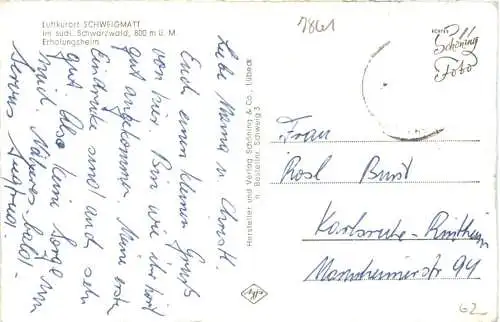 Luftkurort SCHWEIGMATT
im südl. Schwarzwald, 800 m ü. M.
Erholungsheim
7861
ECHTES
Schöning
Foto
Liebe Mama u. Christl.
Euch einen kleinen Gruß
von hier. Bin wie ihr hört
gut angekommen. Meine erste
Eindrücke sind auch sehr
gut. Also keine Sorge um
mich. Näheres bald!
Servus Siegfried.
Hersteller und Verlag Schöning & Co., Lübeck
n. Bestellnr. Schweig 3
Agfa
Frau
Rosl Bust
Karlsruhe-Rintheim
Mannheimerstr 94
62